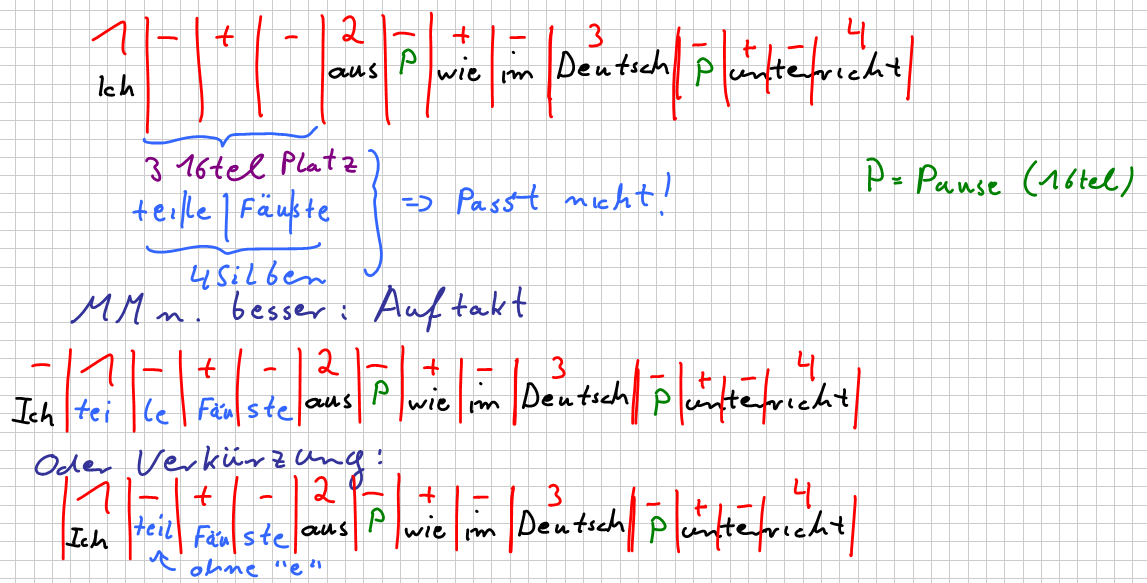 1 | - | + | - | 2 | - | + | - | 3 | - | + | - | 4
Ich | | | | aus | P | wie | im | Deutsch | P | un|ter|richt |
3 16tel Platz
tei/le | Fäu/ste => Passt nicht!
P = Pause (16tel)
4 Silben
MMn. besser: Auftakt
- | 1 | - | + | - | 2 | - | + | - | 3 | - | + | - | 4
Ich | tei | le | Fäu | ste | aus | P | wie | im | Deutsch | P | un|ter|richt |
Oder Verkürzung:
| 1 | - | + | - | 2 | - | + | - | 3 | - | + | - | 4
| Ich | teil | Fäu | ste | aus | P | wie | im | Deutsch | P | un|ter|richt |
ohne "e"